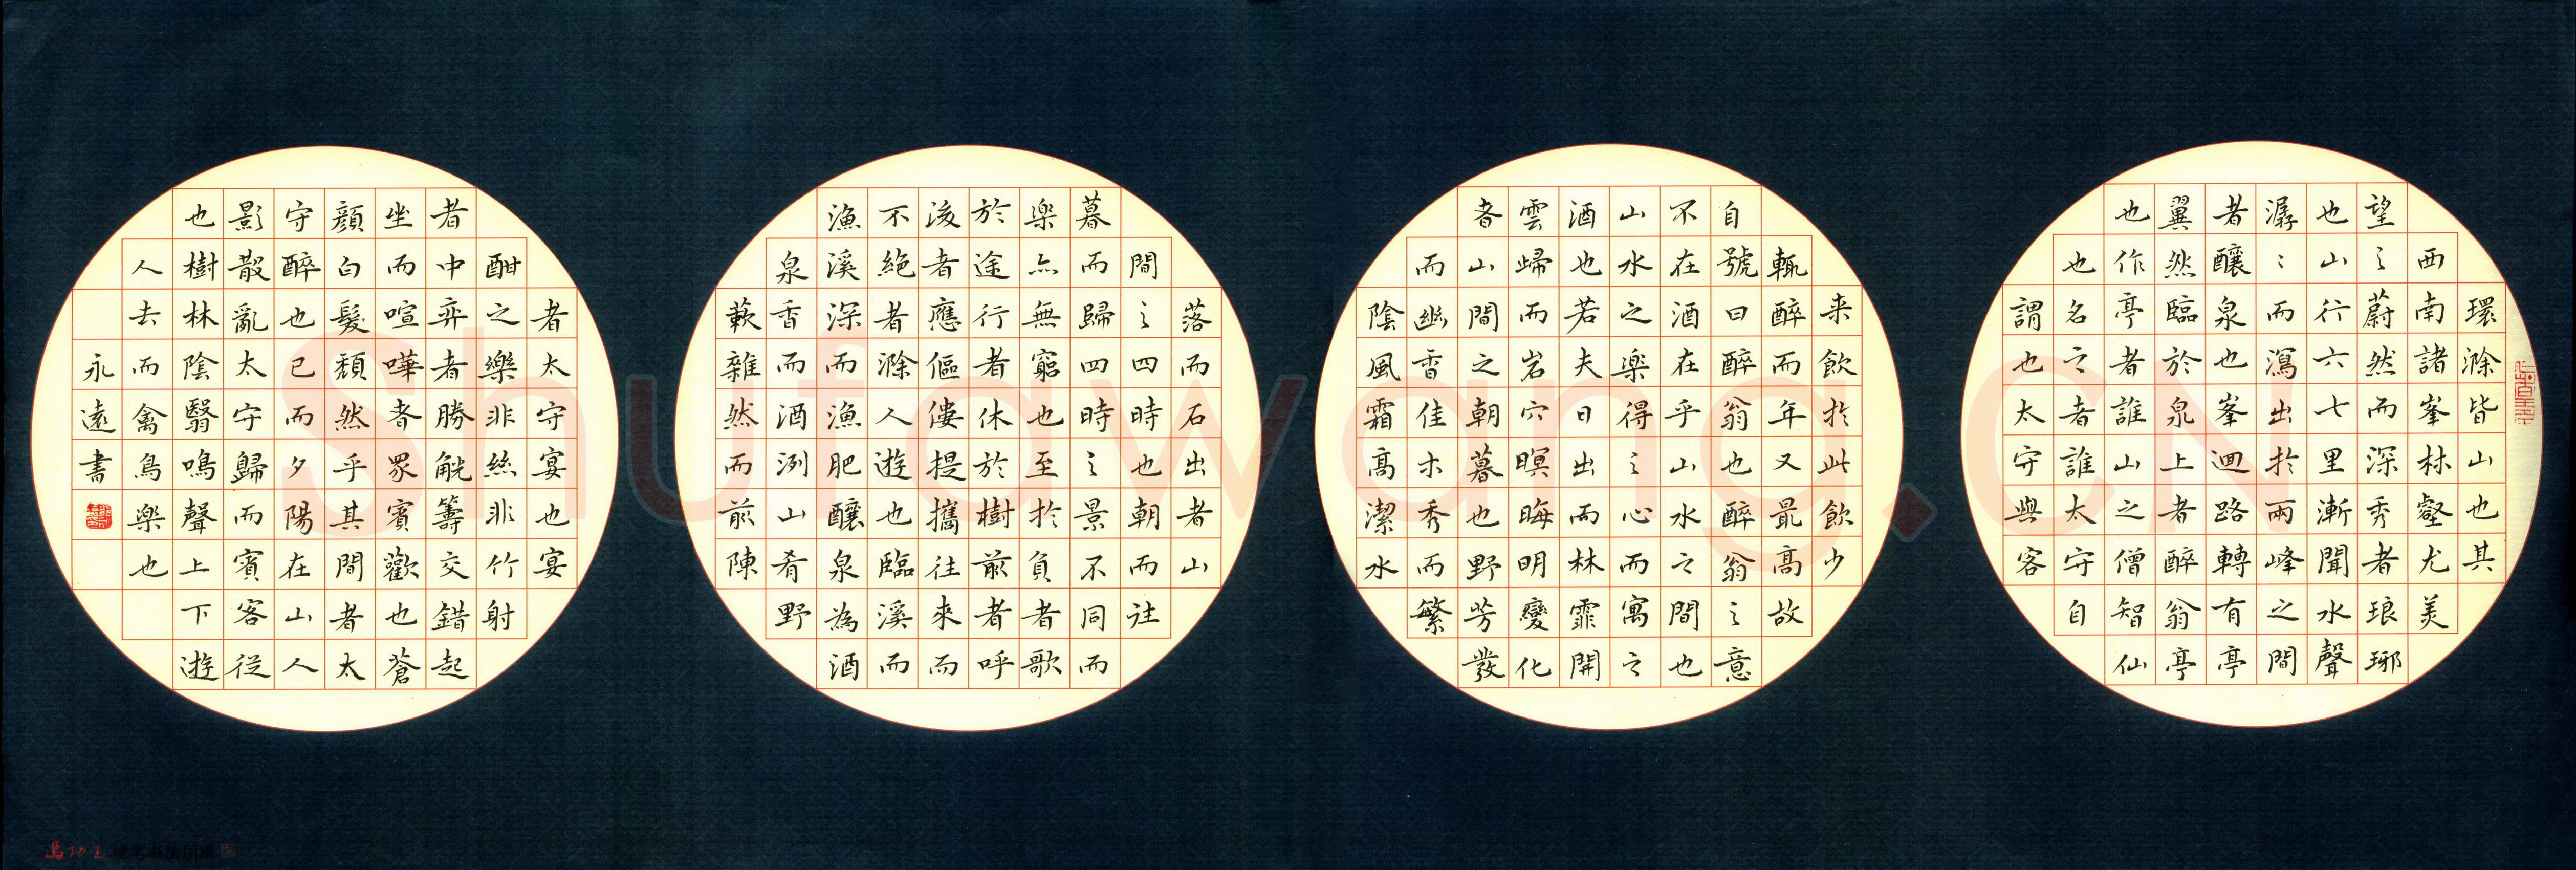 環滁皆山也其
西南諸峯林壑尤美
望之蔚然而深秀者琅琊
也山行六七里漸聞水聲
潺〻而瀉出於兩峰之間
者釀泉也峯迴路轉有亭
翼然臨於泉上者醉翁亭
也作亭者誰山之僧智仙
也名之者誰太守自
謂也太守與客
来飲於此飲少
輒醉而年又最高故
自號曰醉翁也醉翁之意
不在酒在乎山水之間也
山水之樂得之心而寓之
酒也若夫日出而林霏開
雲歸而岩穴暝晦明變化
者山間之朝暮也野芳發
而幽香佳木秀而繁
陰風霜高潔水
落而石出者山
間之四時也朝而往
暮而歸四時之景不同而
樂亦無窮也至於負者歌
於途行者休於樹前者呼
後者應傴僂提攜往來而
不絕者滁人遊也臨溪而
漁溪深而漁肥釀泉為酒
泉香而酒洌山肴野
蔌雜然而前陳
者太守宴也宴
酣之樂非絲非竹射
中弈者勝觥籌交錯起
坐而喧嘩者眾賓歡也蒼
顏白髮頹然乎其間者太
守醉也已而夕陽在山人
影散亂太守歸而賓客從
也樹林陰翳鳴聲上下遊
人去而禽鳥樂也
永遠書
Shufawang.CN